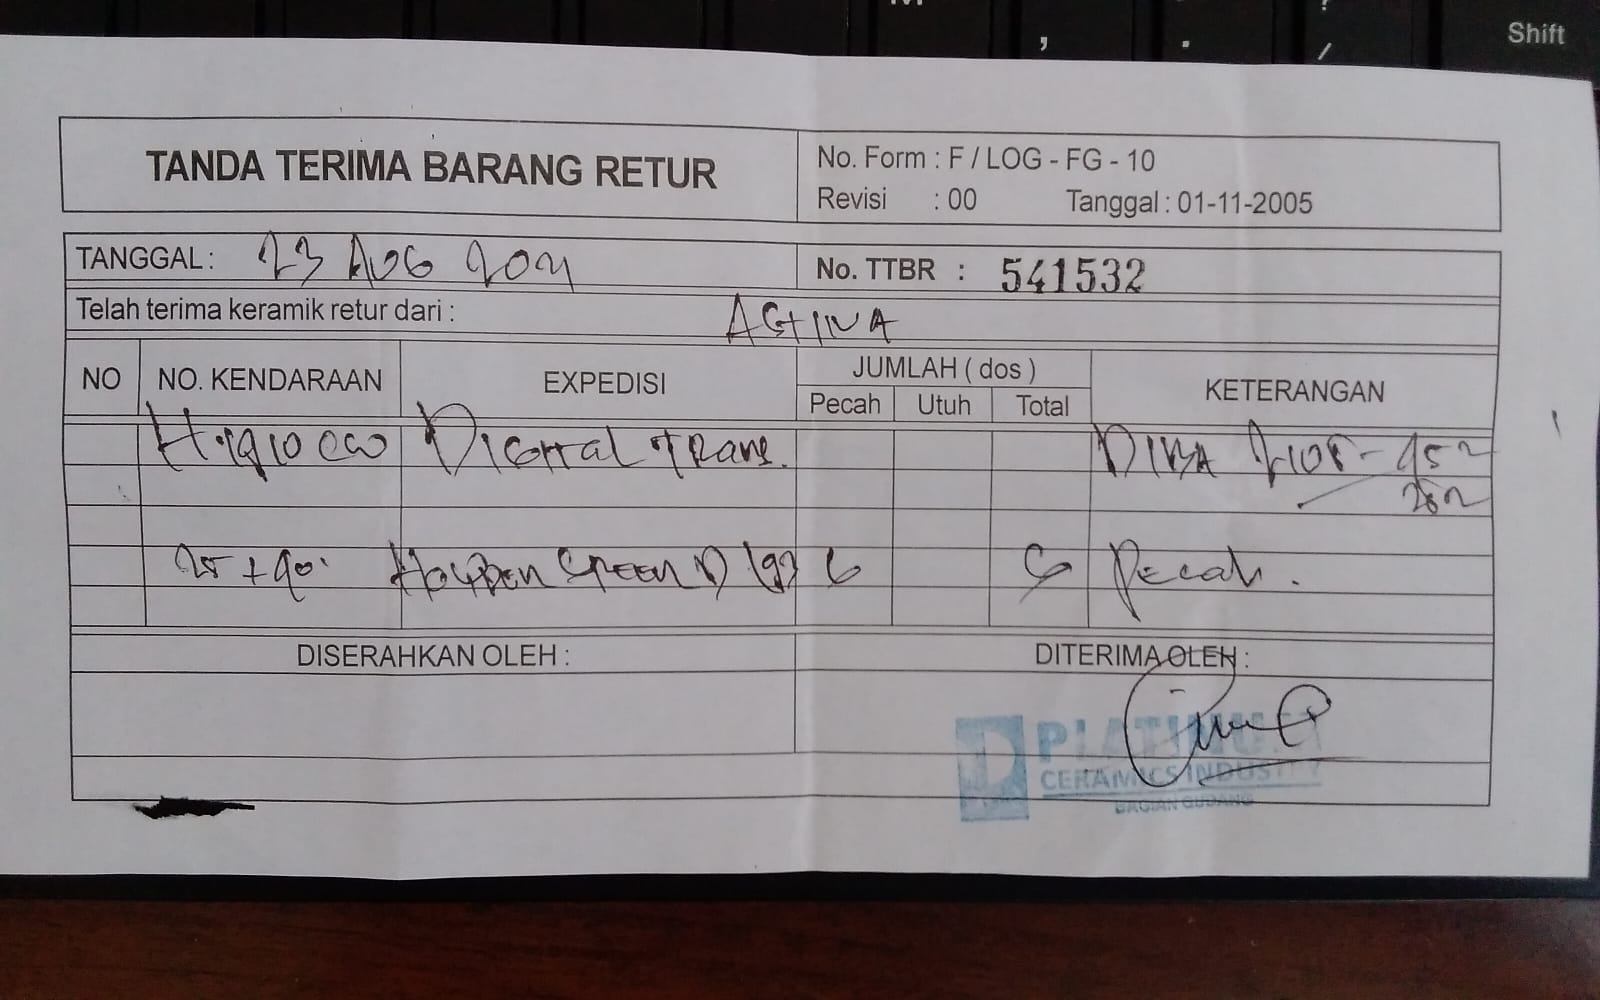 Shift
TANDA TERIMA BARANG RETUR
No. Form : F / LOG - FG - 10
Revisi : 00 Tanggal : 01-11-2005
TANGGAL : 23 AUG 2021
No. TTBR : 541532
Telah terima keramik retur dari :
NO NO. KENDARAAN EXPEDISI JUMLAH ( dos ) KETERANGAN
Pecah Utuh Total
Digital Trans.
25 + 40. Green D 6 6 Pecah.
DISERAHKAN OLEH : DITERIMA OLEH :
PLATINUM
CERAMICS INDUSTRY
BAGIAN GUDANG